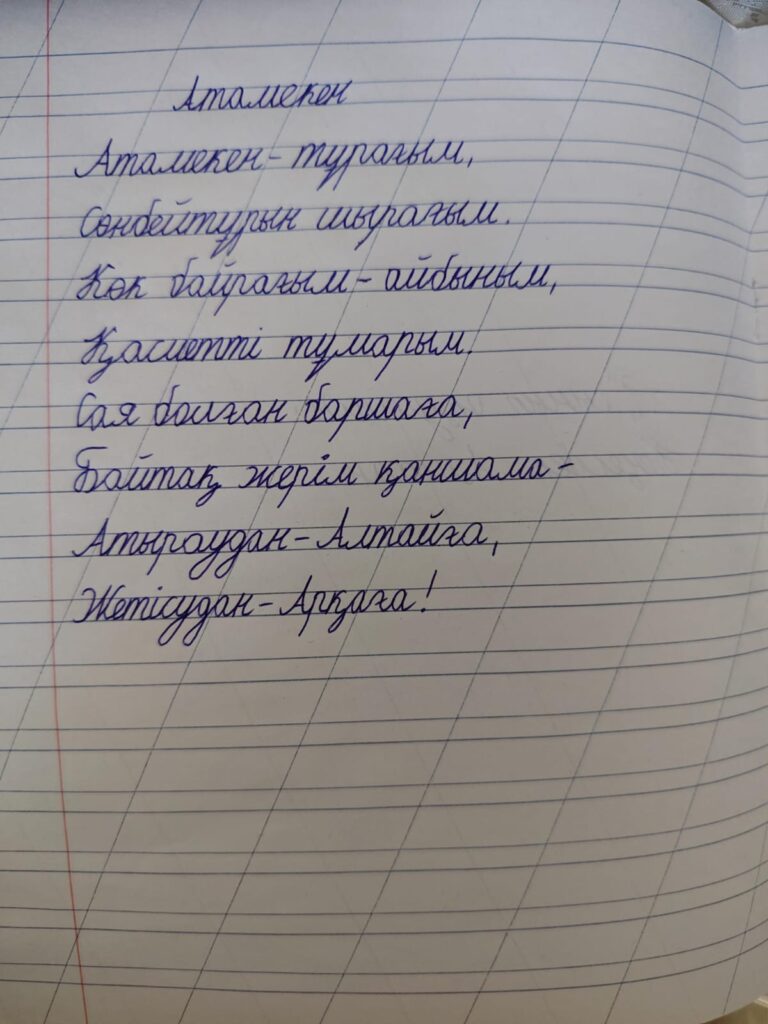 Атамекен
Атамекен- тұрағым,
Сөнбейтұрын шырағым.
Көк байрағым- айбыным,
Қасиетті тұмарым.
Сая болған баршаға,
Байтақ жерім қаншама-
Атыраудан-Алтайға,
Жетісудан-Арқаға!